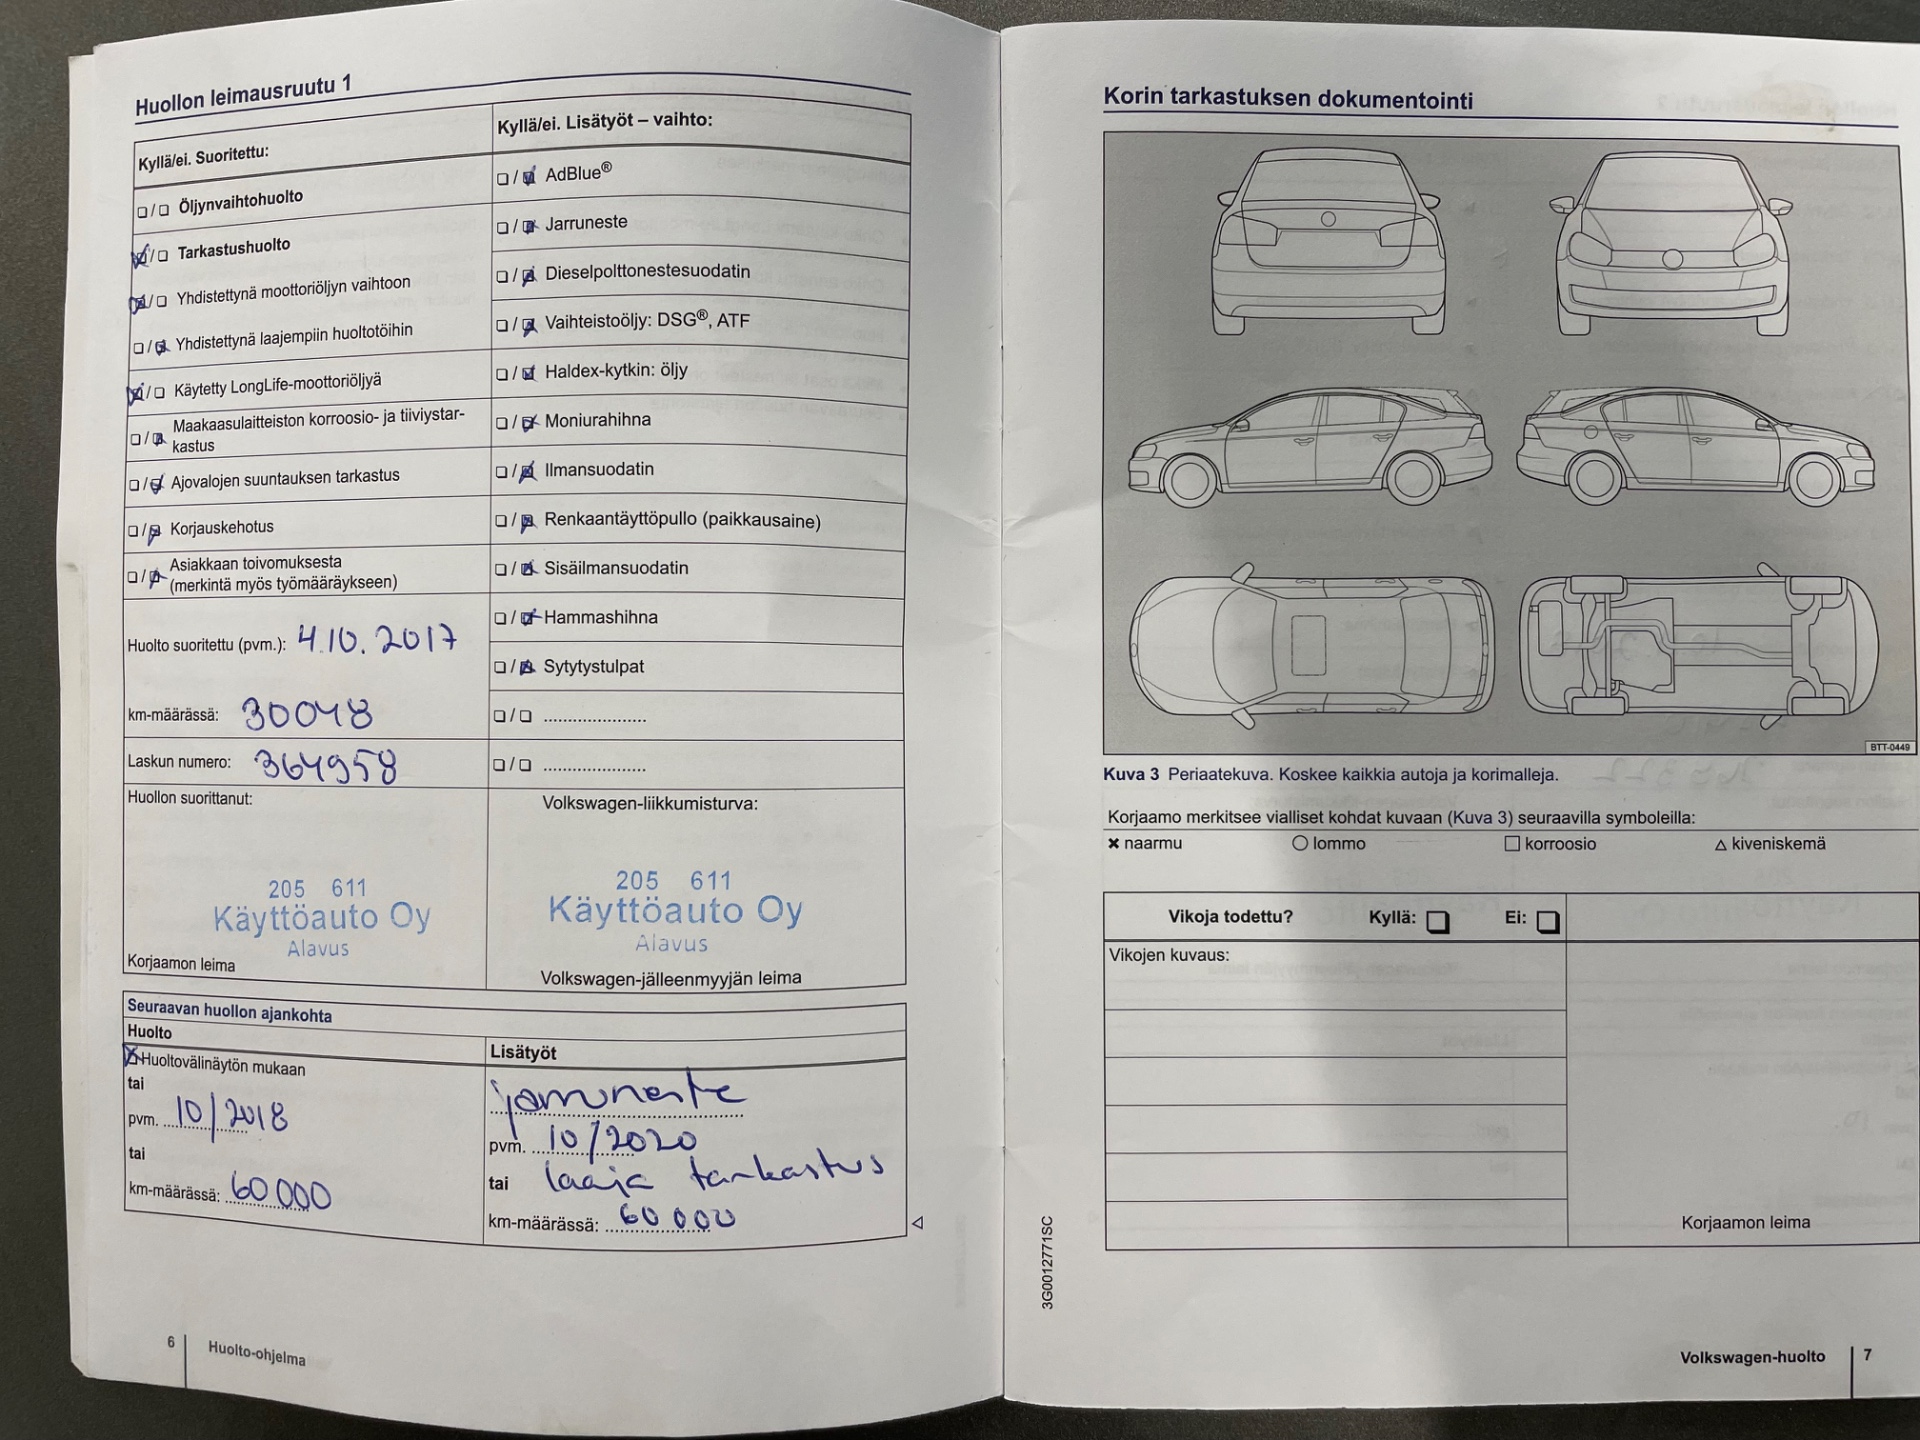 Huollon leimausruutu 1
Kyllä/ei. Suoritettu:
❏ / ❏ Öljynvaihtohuolto
☒ / ❏ Tarkastushuolto
☒ / ❏ Yhdistettynä moottoriöljyn vaihtoon
❏ / ☒ Yhdistettynä laajempiin huoltotöihin
☒ / ❏ Käytetty LongLife-moottoriöljyä
❏ / ☒ Maakaasulaitteiston korroosio- ja tiiviystar-
kastus
❏ / ☒ Ajovalojen suuntauksen tarkastus
❏ / ☒ Korjauskehotus
❏ / ☒ Asiakkaan toivomuksesta
(merkintä myös työmääräykseen)
Huolto suoritettu (pvm.): 4.10.2017
km-määrässä: 30048
Laskun numero: 364958
Huollon suorittanut:
205 611
Käyttöauto Oy
Alavus
Korjaamon leima
Kyllä/ei. Lisätyöt – vaihto:
❏ / ☒ AdBlue®
❏ / ☒ Jarruneste
❏ / ☒ Dieselpolttonestesuodatin
❏ / ☒ Vaihteistoöljy: DSG®, ATF
❏ / ☒ Haldex-kytkin: öljy
❏ / ☒ Moniurahihna
❏ / ☒ Ilmansuodatin
❏ / ☒ Renkaantäyttöpullo (paikkausaine)
❏ / ☒ Sisäilmansuodatin
❏ / ☒ Hammashihna
❏ / ☒ Sytytystulpat
❏ / ❏ .....................
❏ / ❏ .....................
Volkswagen-liikkumisturva:
205 611
Käyttöauto Oy
Alavus
Volkswagen-jälleenmyyjän leima
Seuraavan huollon ajankohta
Huolto
☒ Huoltovälinäytön mukaan
tai
pvm. 10/2018
tai
km-määrässä: 60 000
Lisätyöt
jarruneste
pvm. 10/2020
tai laaja tarkastus
km-määrässä: 60 000
6 Huolto-ohjelma
Korin tarkastuksen dokumentointi
BTT-0449
Kuva 3 Periaatekuva. Koskee kaikkia autoja ja korimalleja.
Korjaamo merkitsee vialliset kohdat kuvaan (Kuva 3) seuraavilla symboleilla:
✖ naarmu ○ lommo □ korroosio △ kiveniskemä
Vikoja todettu? Kyllä: ❏ Ei: ❏
Vikojen kuvaus:
Korjaamon leima
3G0012771SC
Volkswagen-huolto 7